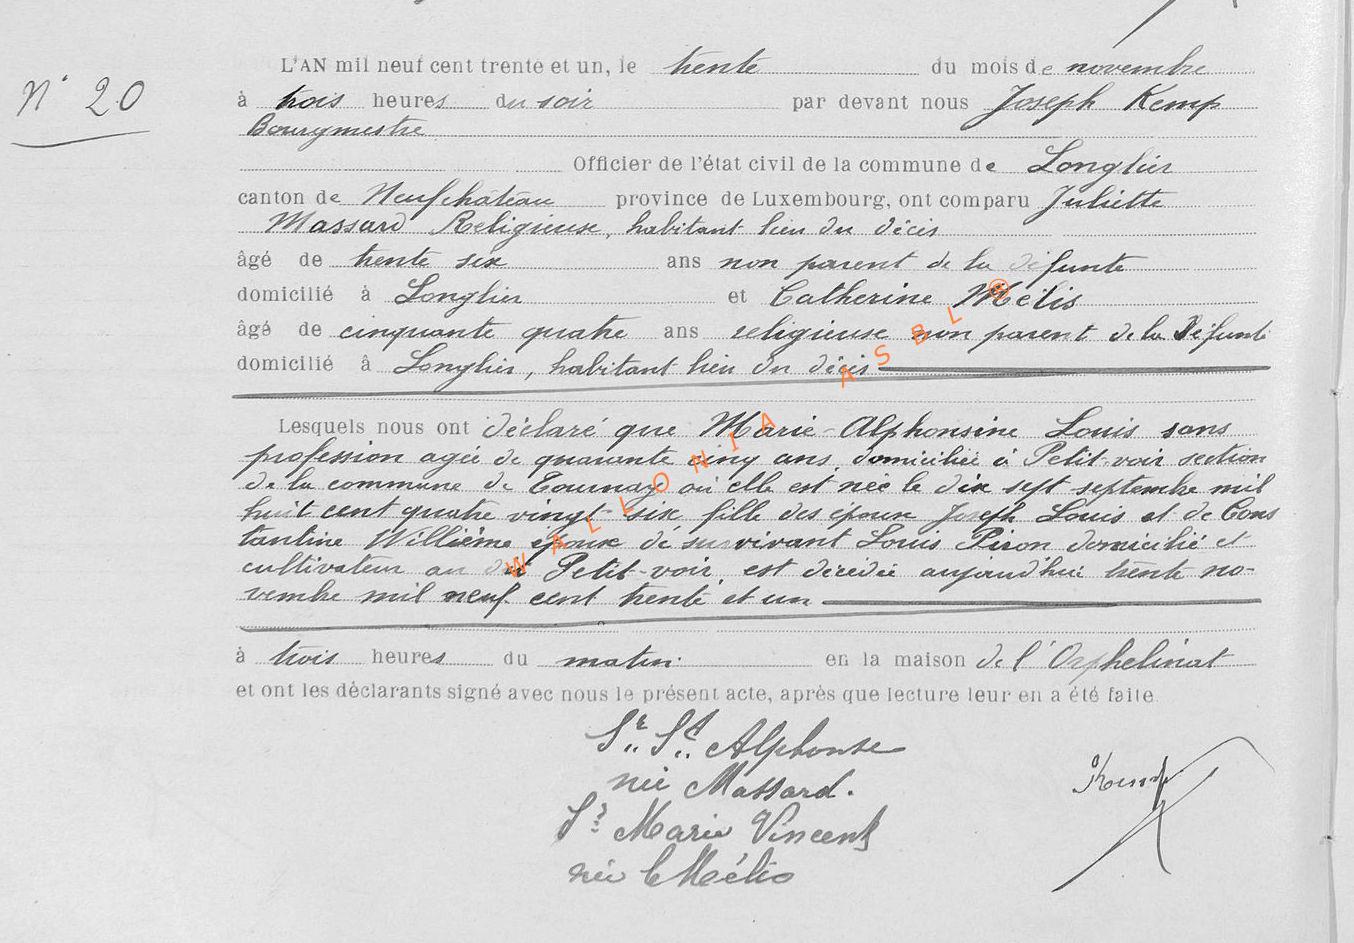 N° 20
L'AN mil neuf cent trente et un, le trente du mois de novembre
à trois heures du soir par devant nous Joseph Kemp
Bourgmestre
Officier de l'état civil de la commune de Longlier
canton de Neufchâteau province de Luxembourg, ont comparu Juliette
Massard Religieuse, habitant lieu du décès
âgé de trente six ans non parent de la défunte
domicilié à Longlier et Catherine Mélis
âgé de cinquante quatre ans religieuse non parent de la défunte
domicilié à Longlier, habitant lieu du décès
Lesquels nous ont déclaré que Marie-Alphonsine Louis sans
profession agée de quarante cinq ans, domiciliée à Petit-voir section
de la commune de Tournay où elle est née le dix sept septembre mil
huit cent quatre vingt six fille des époux Joseph Louis et de Cons
tantine Willième épouse de survivant Louis Piron domicilié et
cultivateur au dit Petit-voir, est décédée aujourd'hui trente no-
vembre mil neuf cent trente et un
à trois heures du matin en la maison de l'Orphelinat
et ont les déclarants signé avec nous le présent acte, après que lecture leur en a été faite.
Sr. St. Alphonse
née Massard.
Kemp
Sr Marie Vincent
née C Mélis
WALLONIA ASBL ®